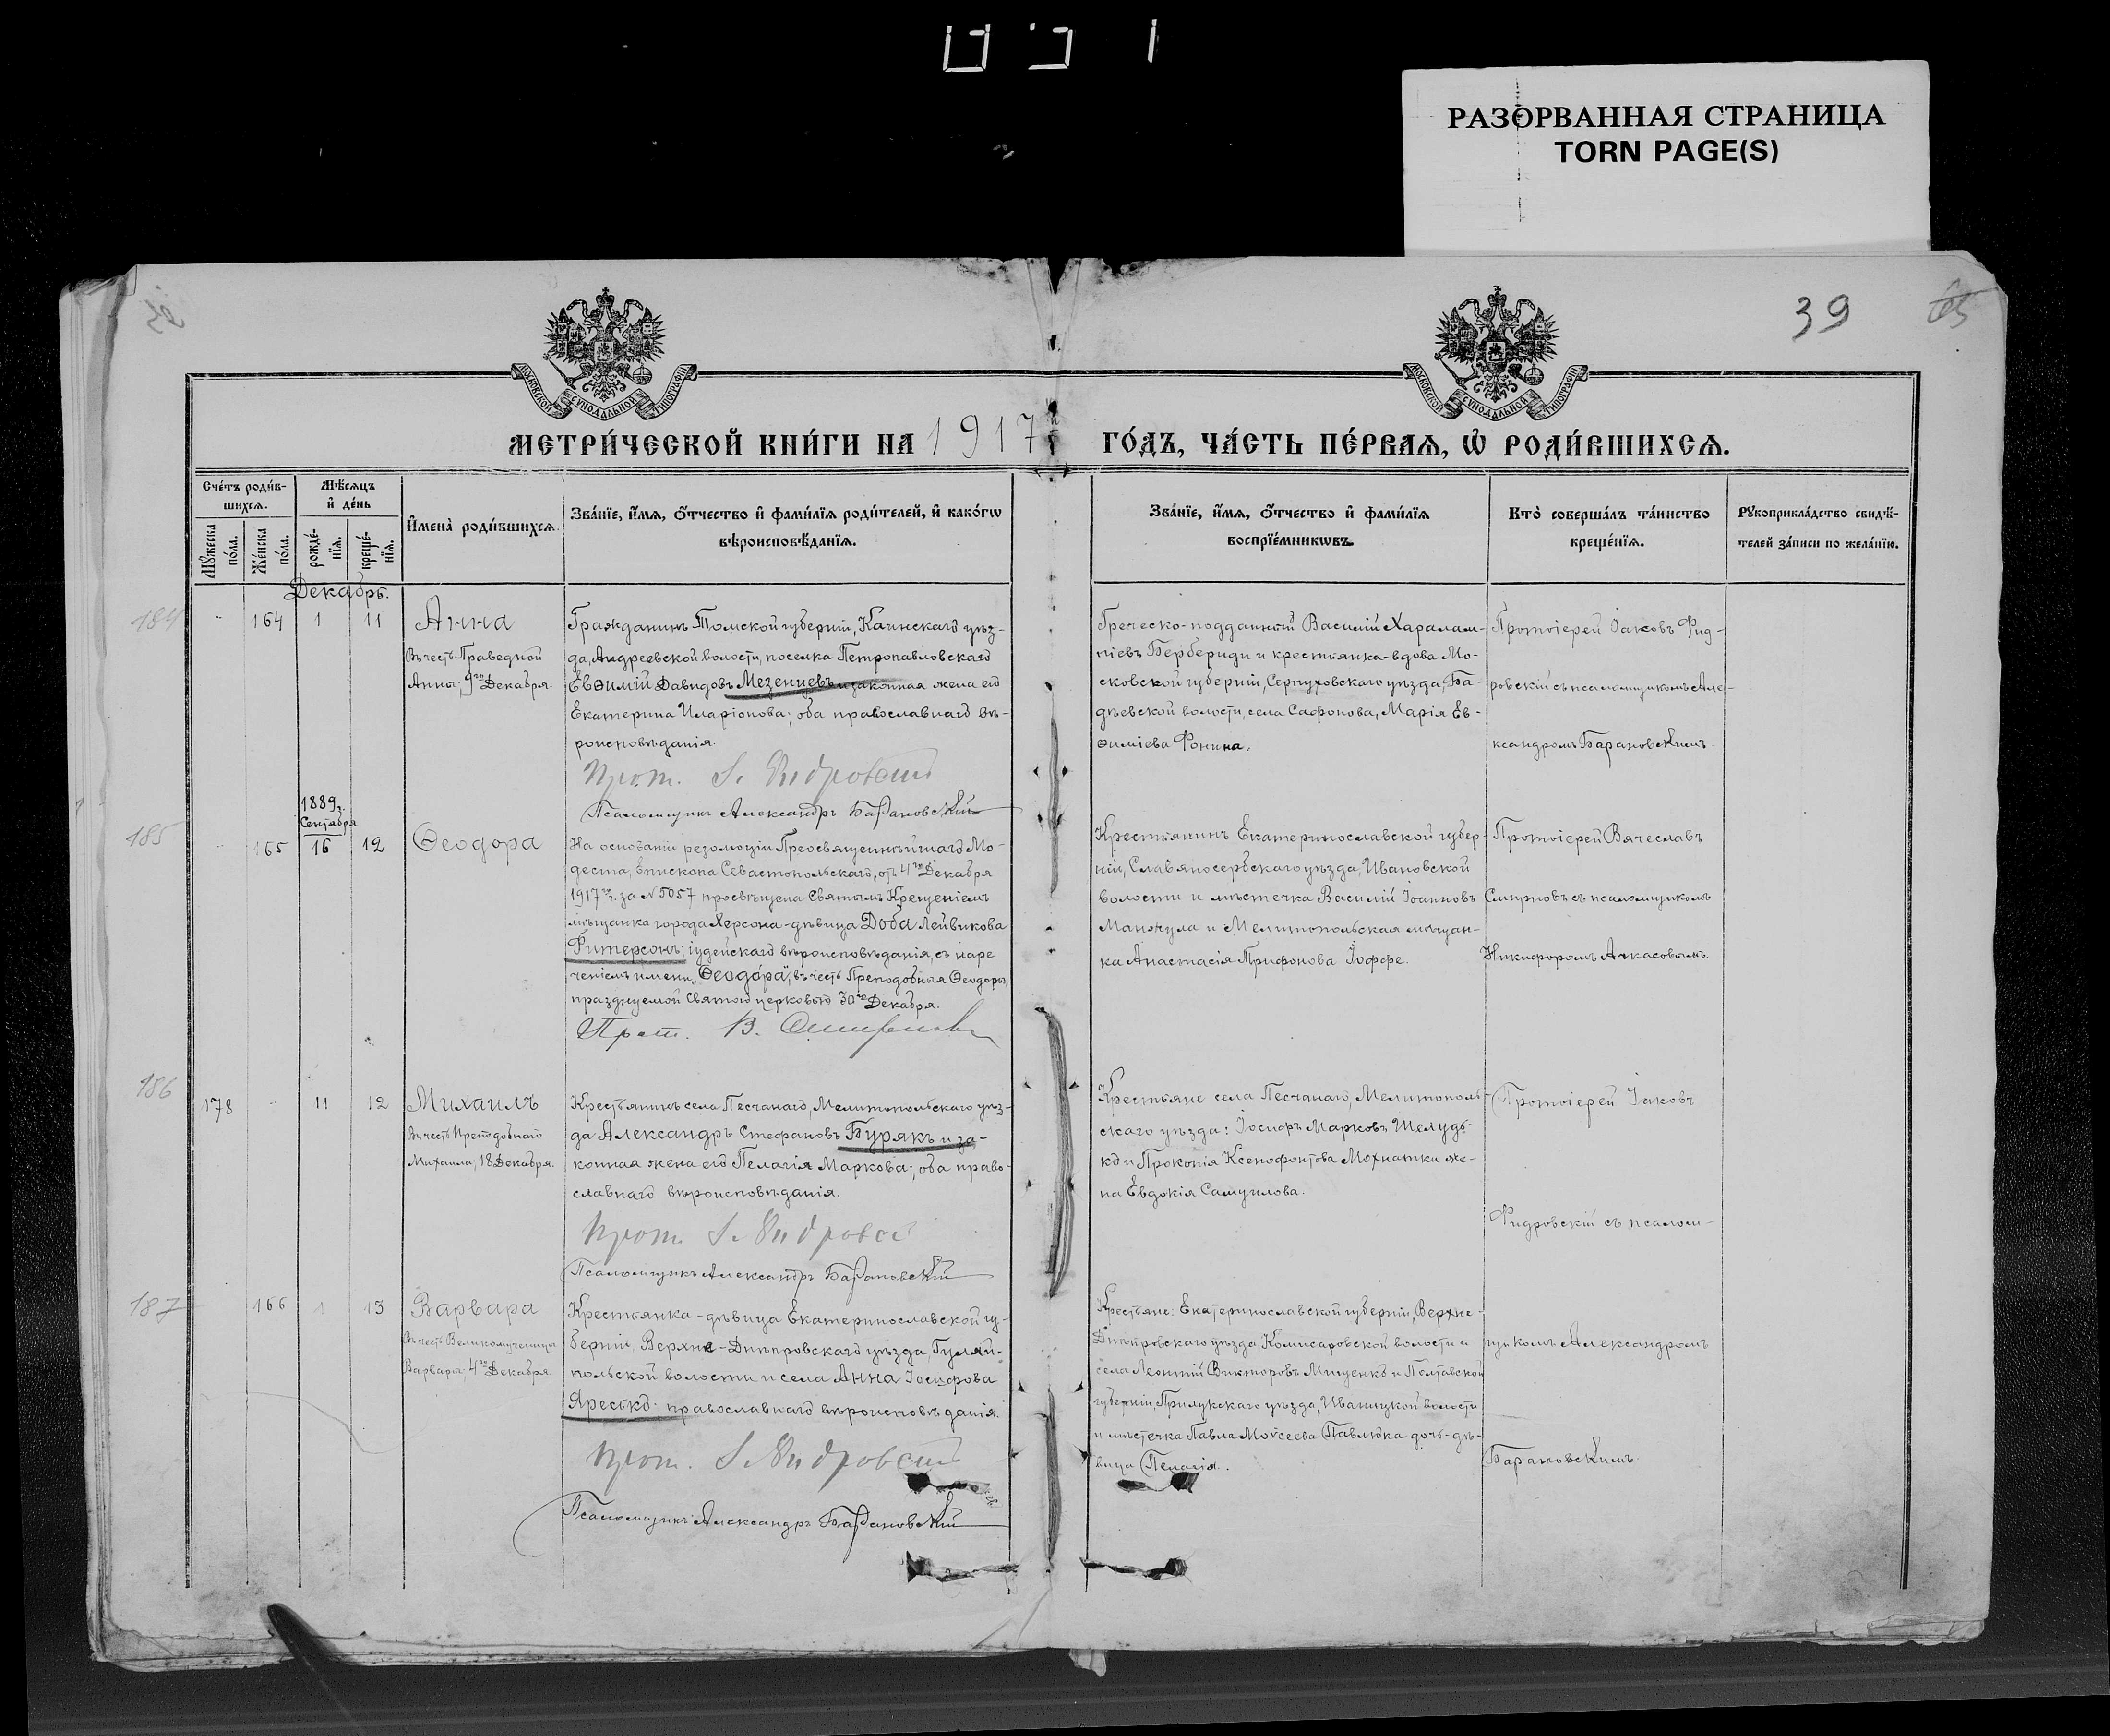 РАЗОРВАННАЯ СТРАНИЦА
TORN PAGE(S)
39
МОСКОВСКОЙ СУНОДАЛЬНОЙ ТИПОГРАФІИ
МОСКОВСКОЙ СУНОДАЛЬНОЙ ТИПОГРАФІИ
МЕТРИ́ЧЕСКОЙ КНИ́ГИ НА 1917 ГО́ДЪ, ЧА́СТЬ ПЕ́РВАѦ, Ѡ҆ РОДИ́ВШИХСѦ.
Сче́тъ роди́в-
шихсѧ.
Мѣ́сѧцъ
и҆ де́нь
Мꙋ́жеска
по́ла.
Же́нска
по́ла.
рожде́-
нїѧ.
креще́-
нїѧ.
И҆мена̀ роди́вшихсѧ.
Зва́нїе, и҆́мѧ, ѻ҆́тчество и҆ фами́лїѧ роди́телей, и҆ како́гѡ
вѣроисповѣ́данїѧ.
Зва́нїе, и҆́мѧ, ѻ҆́тчество и҆ фами́лїѧ
воспрїе́мникѡвъ.
Кто̀ соверша́лъ та́инство
креще́нїѧ.
Рꙋкоприкла́дство свидѣ́-
телей за́писи по жела́нїю.
Декабрь.
184
164
1
11
Анна
Въ честь Праведной
Анны, 9го Декабря.
Гражданинъ Томской губерніи, Каинскаго уѣз-
да, Андреевской волости, поселка Петропавловскаго
Евѳимій Давидовъ Мезенцевъ и законная жена его
Екатерина Иларіонова; оба православнаго вѣ-
роисповѣданія.
Прот. І. Фидровскій
Псаломщикъ Александръ Барановскій
Греческо-подданный Василій Харалам-
піевъ Бербериди и крестьянка-вдова Мо-
сковской губерніи, Серпуховскаго уѣзда, Ба-
дѣевской волости, села Сафонова, Марія Ев-
ѳиміева Фонина.
Протоіерей Іаковъ Фид-
ровскій съ псаломщикомъ Але-
ксандромъ Барановскимъ.
185
165
1889 г.
Сентября
16
12
Ѳеодора
На основаніи резолюціи Преосвященнѣйшаго Мо-
деста, Епископа Севастопольскаго, отъ 4го Декабря
1917 г. за № 5057 просвѣщена Святымъ Крещеніемъ
мѣщанка города Херсона-дѣвица Доба Лейвикова
Фитерсонъ іудейскаго вѣроисповѣданія, съ наре
ченіемъ имени „Ѳеодора", въ честь Преподобныя Ѳеодоры,
празднуемой Святою церковью 30го Декабря.
Прот. В. Смирновъ
Крестьянинъ Екатеринославской губер-
ніи, Славяносербскаго уѣзда, Ивановской
волости и мѣстечка Василій Іоанновъ
Манжула и Мелитопольская мѣщан-
ка Анастасія Трифонова Іоффе.
Протоіерей Вячеславъ
Смирновъ съ псаломщикомъ
Никифоромъ Ачкасовымъ.
186
178
11
12
Михаилъ
Въ честь Преподобнаго
Михаила, 18 Декабря.
Крестьянинъ села Песчанаго, Мелитопольскаго уѣз-
да Александръ Стефановъ Бурякъ и за-
конная жена его Пелагія Маркова; оба право-
славнаго вѣроисповѣданія.
Прот. І. Фидровскій
Псаломщикъ Александръ Барановскій
Крестьяне села Песчанаго, Мелитополь-
скаго уѣзда: Іосифъ Марковъ Шелудь-
ко и Прокопія Ксенофонтова Мохнатки же-
на Евдокія Самуилова.
Протоіерей Іаковъ
Фидровскій съ псалом-
187
166
1
13
Варвара
Въ честь Великомученицы
Варвары, 4го Декабря.
Крестьянка-дѣвица Екатеринославской гу-
берніи, Верхне-Днѣпровскаго уѣзда, Гуляй-
польской волости и села Анна Іосифова
Яресько православнаго вѣроисповѣданія.
Прот. І. Фидровскій
Псаломщикъ Александръ Барановскій
Крестьяне: Екатеринославской губерніи, Верхне-
Днѣпровскаго уѣзда, Комисаровской волости и
села Леонтій Викторовъ Мищенко и Полтавской
губерніи, Прилукскаго уѣзда, Иваницкой волости
и мѣстечка Павла Моѵсеева Павлюка дочь-дѣ-
вица Пелагія.
щикомъ Александромъ
Барановскимъ.